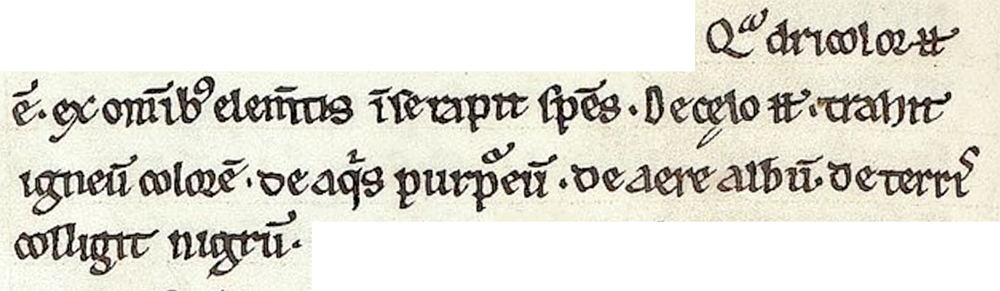 Qᵃdricolor tt
ē. ex om̄ibꝰ elem̄tis īse rapit spēs. De cęlo tt. trahit
igneū colorē. de aqͥs purpᵃeū. de aere albū. de terrīˢ
colligit nigrū.